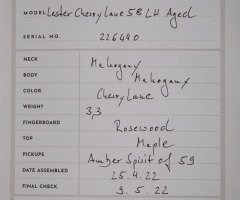 MODEL Lester Cherry Lane 58 LH Aged
SERIAL NO. 226440
NECK Mahogany
BODY Mahogany
COLOR Cherry Lane
WEIGHT 3,3
FINGERBOARD Rosewood
TOP Maple
PICKUPS Amber Spirit of 59
DATE ASSEMBLED 25.4.22
FINAL CHECK 9.5.22